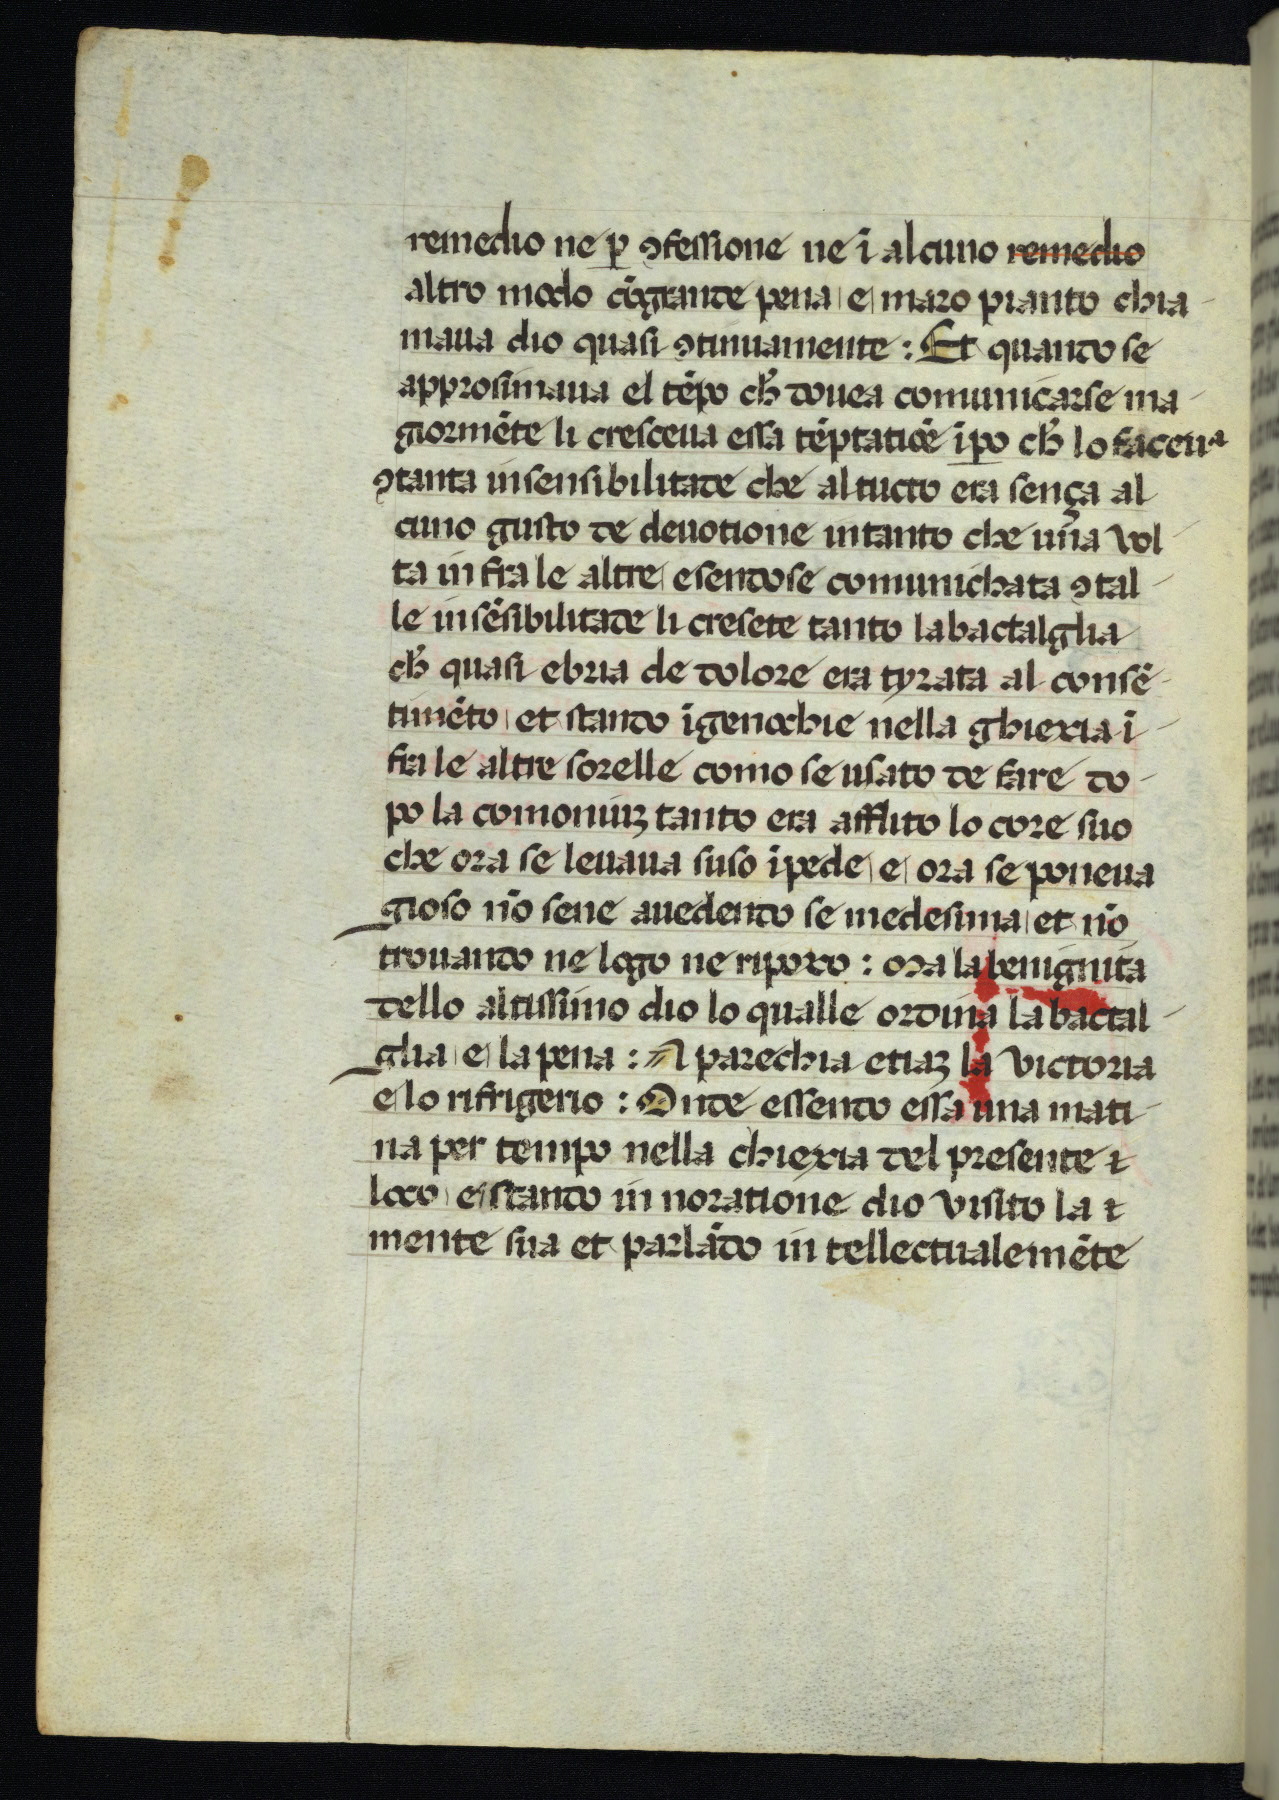 remedio ne ꝑ ꝯfessione ne ī alcuno remedio
altro modo cō grande pena e maxo pianto chia
maua dio quasi ꝯtinuamente : Et quando se
approsimaua el tēpo ch̄ douea comunicarse ma
giormēte li cresceua essa tēptatiōe īꝑo ch̄ lo faceuᵃ
ꝯtanta insensibilitade che al tucto era sença al
cuno gusto de deuotione intanto che una vol
ta in fra le altre esendose comunichata ꝯ tal
le insēsibilitade li cresete tanto la bactalglia
ch̄ quasi ebria de dolore era tyrata al consē
timēto et stando īgenochie nella ghiexia ī
fra le altre sorelle como se usato de fare do
po la comoniuꝫ tanto era afflito lo core suo
che ora se leuaua suso ī pede e ora se poneua
gioso nō sene auedendo se medesima et nō
trouando ne logo ne riposo : Ma la benignita
dello altissimo dio lo qualle ordina la bactal
glia e la pena : Aparechia etiaꝫ la victoria
e lo rifrigerio : Onde essendo essa una mati
na per tempo nella chiexia del presente ꝛ
loco e stando in noratione dio visito la ꝛ
mente sua et parlādo in tellectualemēte